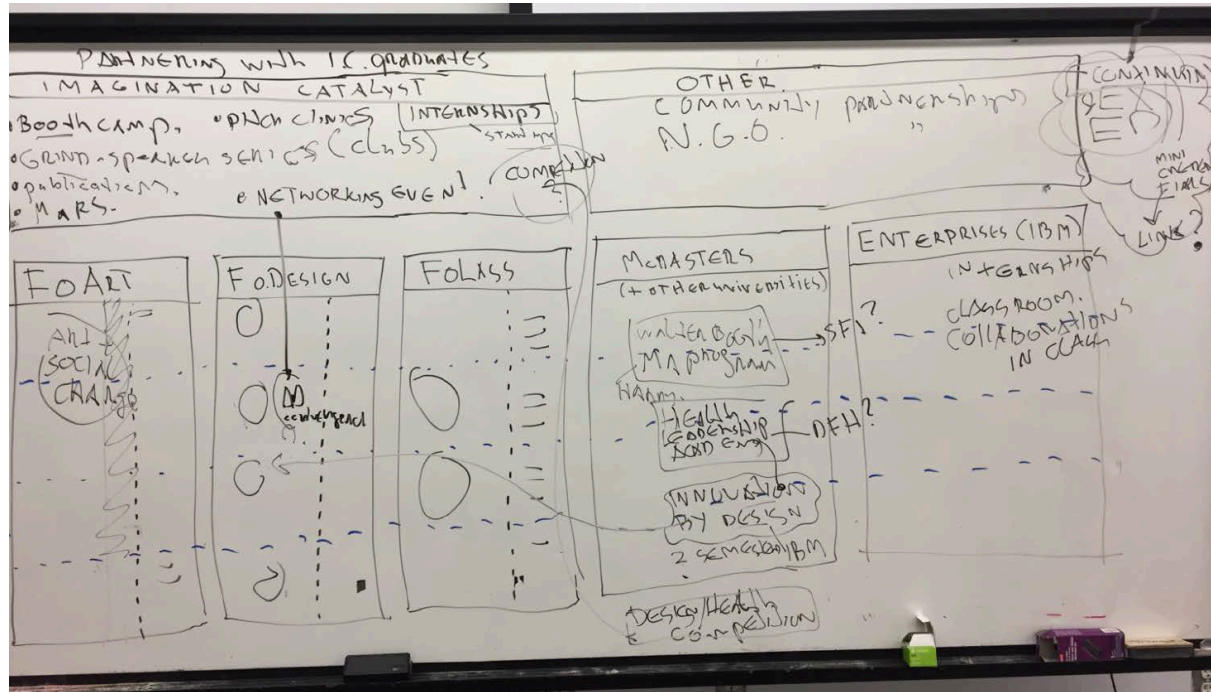 PARTNERING WITH I.C. GRADUATES
IMAGINATION CATALYST
• BOOTHCAMP. • PITCH CLINICS INTERNSHIPS
• GRIND - SPEAKER SERIES (CLUBS)
• publications.
• NETWORKING EVENT.
• MARS.
COMPETITION
?
OTHER.
COMMUNITY PARTNERSHIPS
N.G.O.
CONTINUUM
MINI
LINKS?
FOART
ART
SOCIAL
CHANGE
FO.DESIGN
FOLASS
McMASTERS
(+ OTHER UNIVERSITIES)
MA PROGRAM
SFI?
HEALTH
LEADERSHIP
ACADEMY
DFH?
INNOVATION
BY DESIGN
2 SEMESTER IBM
DESIGN/HEALTH
COMPETITION
ENTERPRISES (IBM)
INTERNSHIPS
CLASSROOM.
COLLABORATIONS
IN CLASS